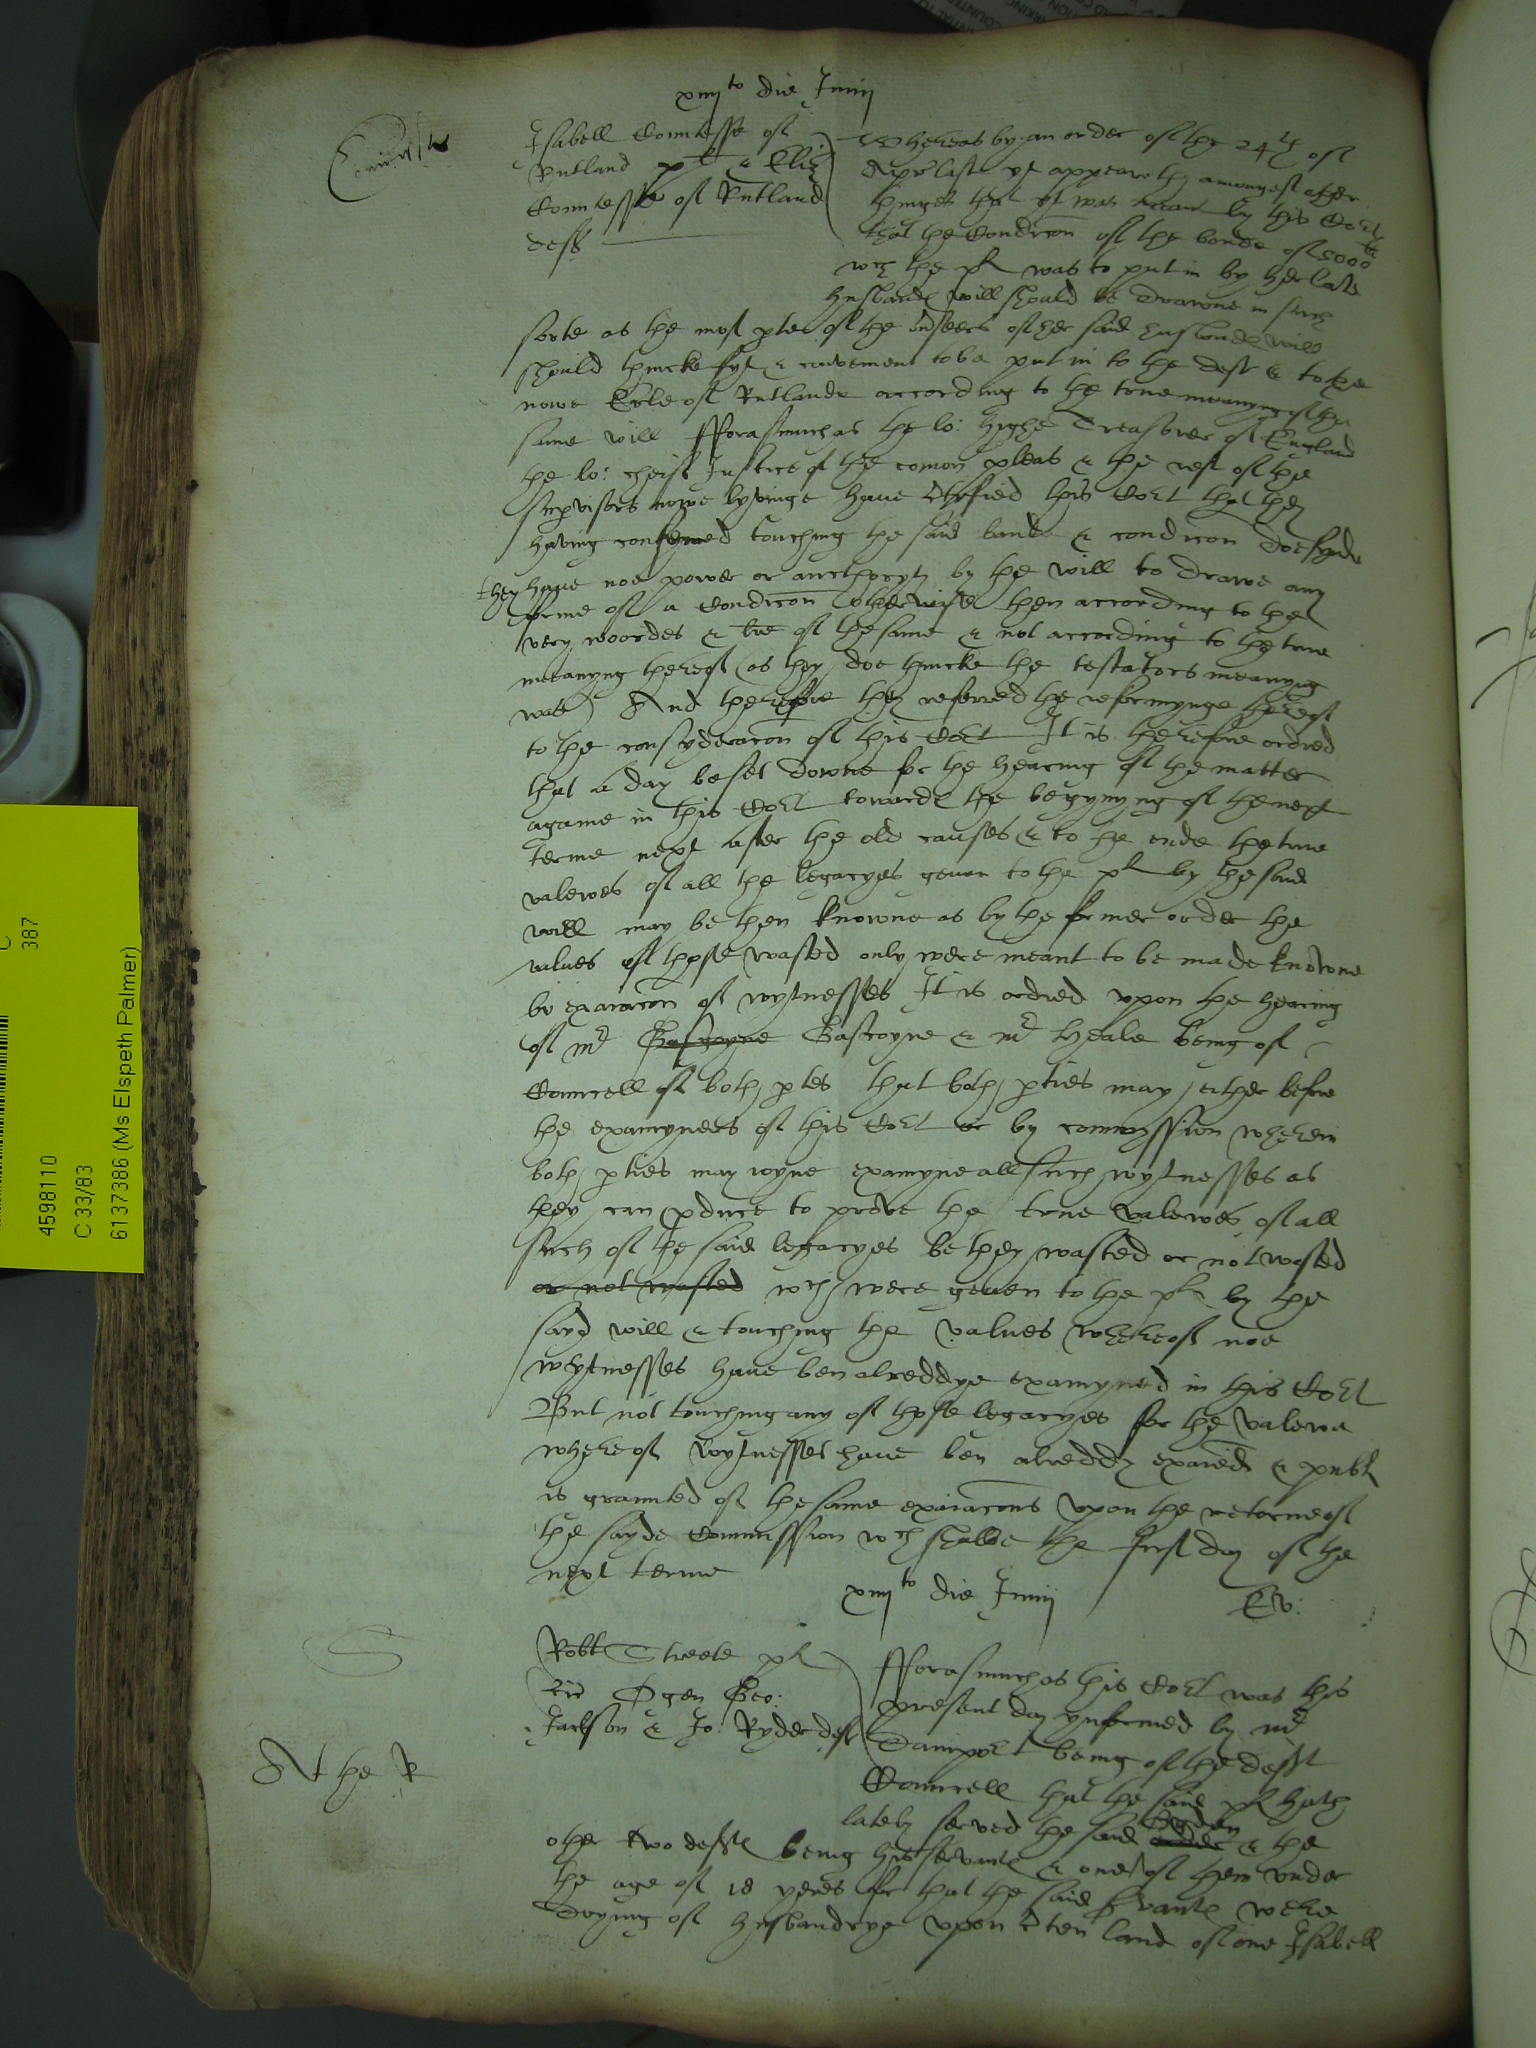 xiiijto die Junij
Isabell Countesse of
Rutland plt & Eliz
Countesse of Rutland
deft
Whereas by an order of the 24th of
Aprill last yt appeareth amongest other
thinges that yt was meant by this Court
that the Condicon of the bonde of 5000li
wch the pl was to put in by her late
husbandes will should be drawne in such
sorte as the most pte of the ovrseers of her said husbandes will
should thincke fyt & convenient to be put in to the deft & to the
nowe Erle of Rutlande according to the true meanyng of the
same will fforasmuch as the lo: highe Treasorer of England
the lo: cheif Justice of the comon pleas & the rest of the
supvisors nowe lyvinge have Certefied this Court that they
having conferred touching the said band & condicon doe fynde
they have noe power or aucthoryty by the will to drawe any
forme of a Condicon otherwise then according to the
very woordes & lre of the same & not according to the true
meanyng thereof (as they doe thincke the testators meanyng
was) And therefore they referred the reformynge thereof
to the consyderacon of this Court It is therefore ordred
that a day be set downe for the hearing of the matter
againe in this Court towardes the begynyng of the next
terme next after the old causes & to the ende the true
valewes of all the legacyes geven to the pl by the said
will may be then knowne as by the former order the
values of those wasted only were meant to be made knowne
by exaiacon of wytnesses It is ordred upon the hearing
of mr Gascoyne Gascoyne & mr Heale being of
Councell of both ptes that both pties may either before
the examyners of this Court or by commyssion wherein
both pties may ioyne examyne all such wytnesses as
they can pduce to prove the true valewes of all
such of the said legacyes be they wasted or not wasted
or not wasted wch were geven to the pl by the
sayd will & touching the values whereof noe
wytnesses have ben alreddye examyned in this Court
But not touching any of those legacyes for the valewe
whereof wytnesses have ben alreddy exaied & publ
is graunted of the same exaiacons upon the retorne of
the sayde Commission wch shalbe the first day of the
next terme
xiiijto die Junij
Ex:
Robt Streete pl
Ric Ogen Geo:
Jackson & Jo: Ryder deft
fforasmuch as this Court was this
present day ynformed by mr
Damport being of the deftes
Councell that the said pl hath
lately served the said Ogden & the
other two deftes being his servantes & one of them under
the age of 18 yeres for that the said servantes were
doying of husbandrye upon Cten land of one Isabell
4598110
C 33/83
6137386 (Ms Elspeth Palmer)
C
387